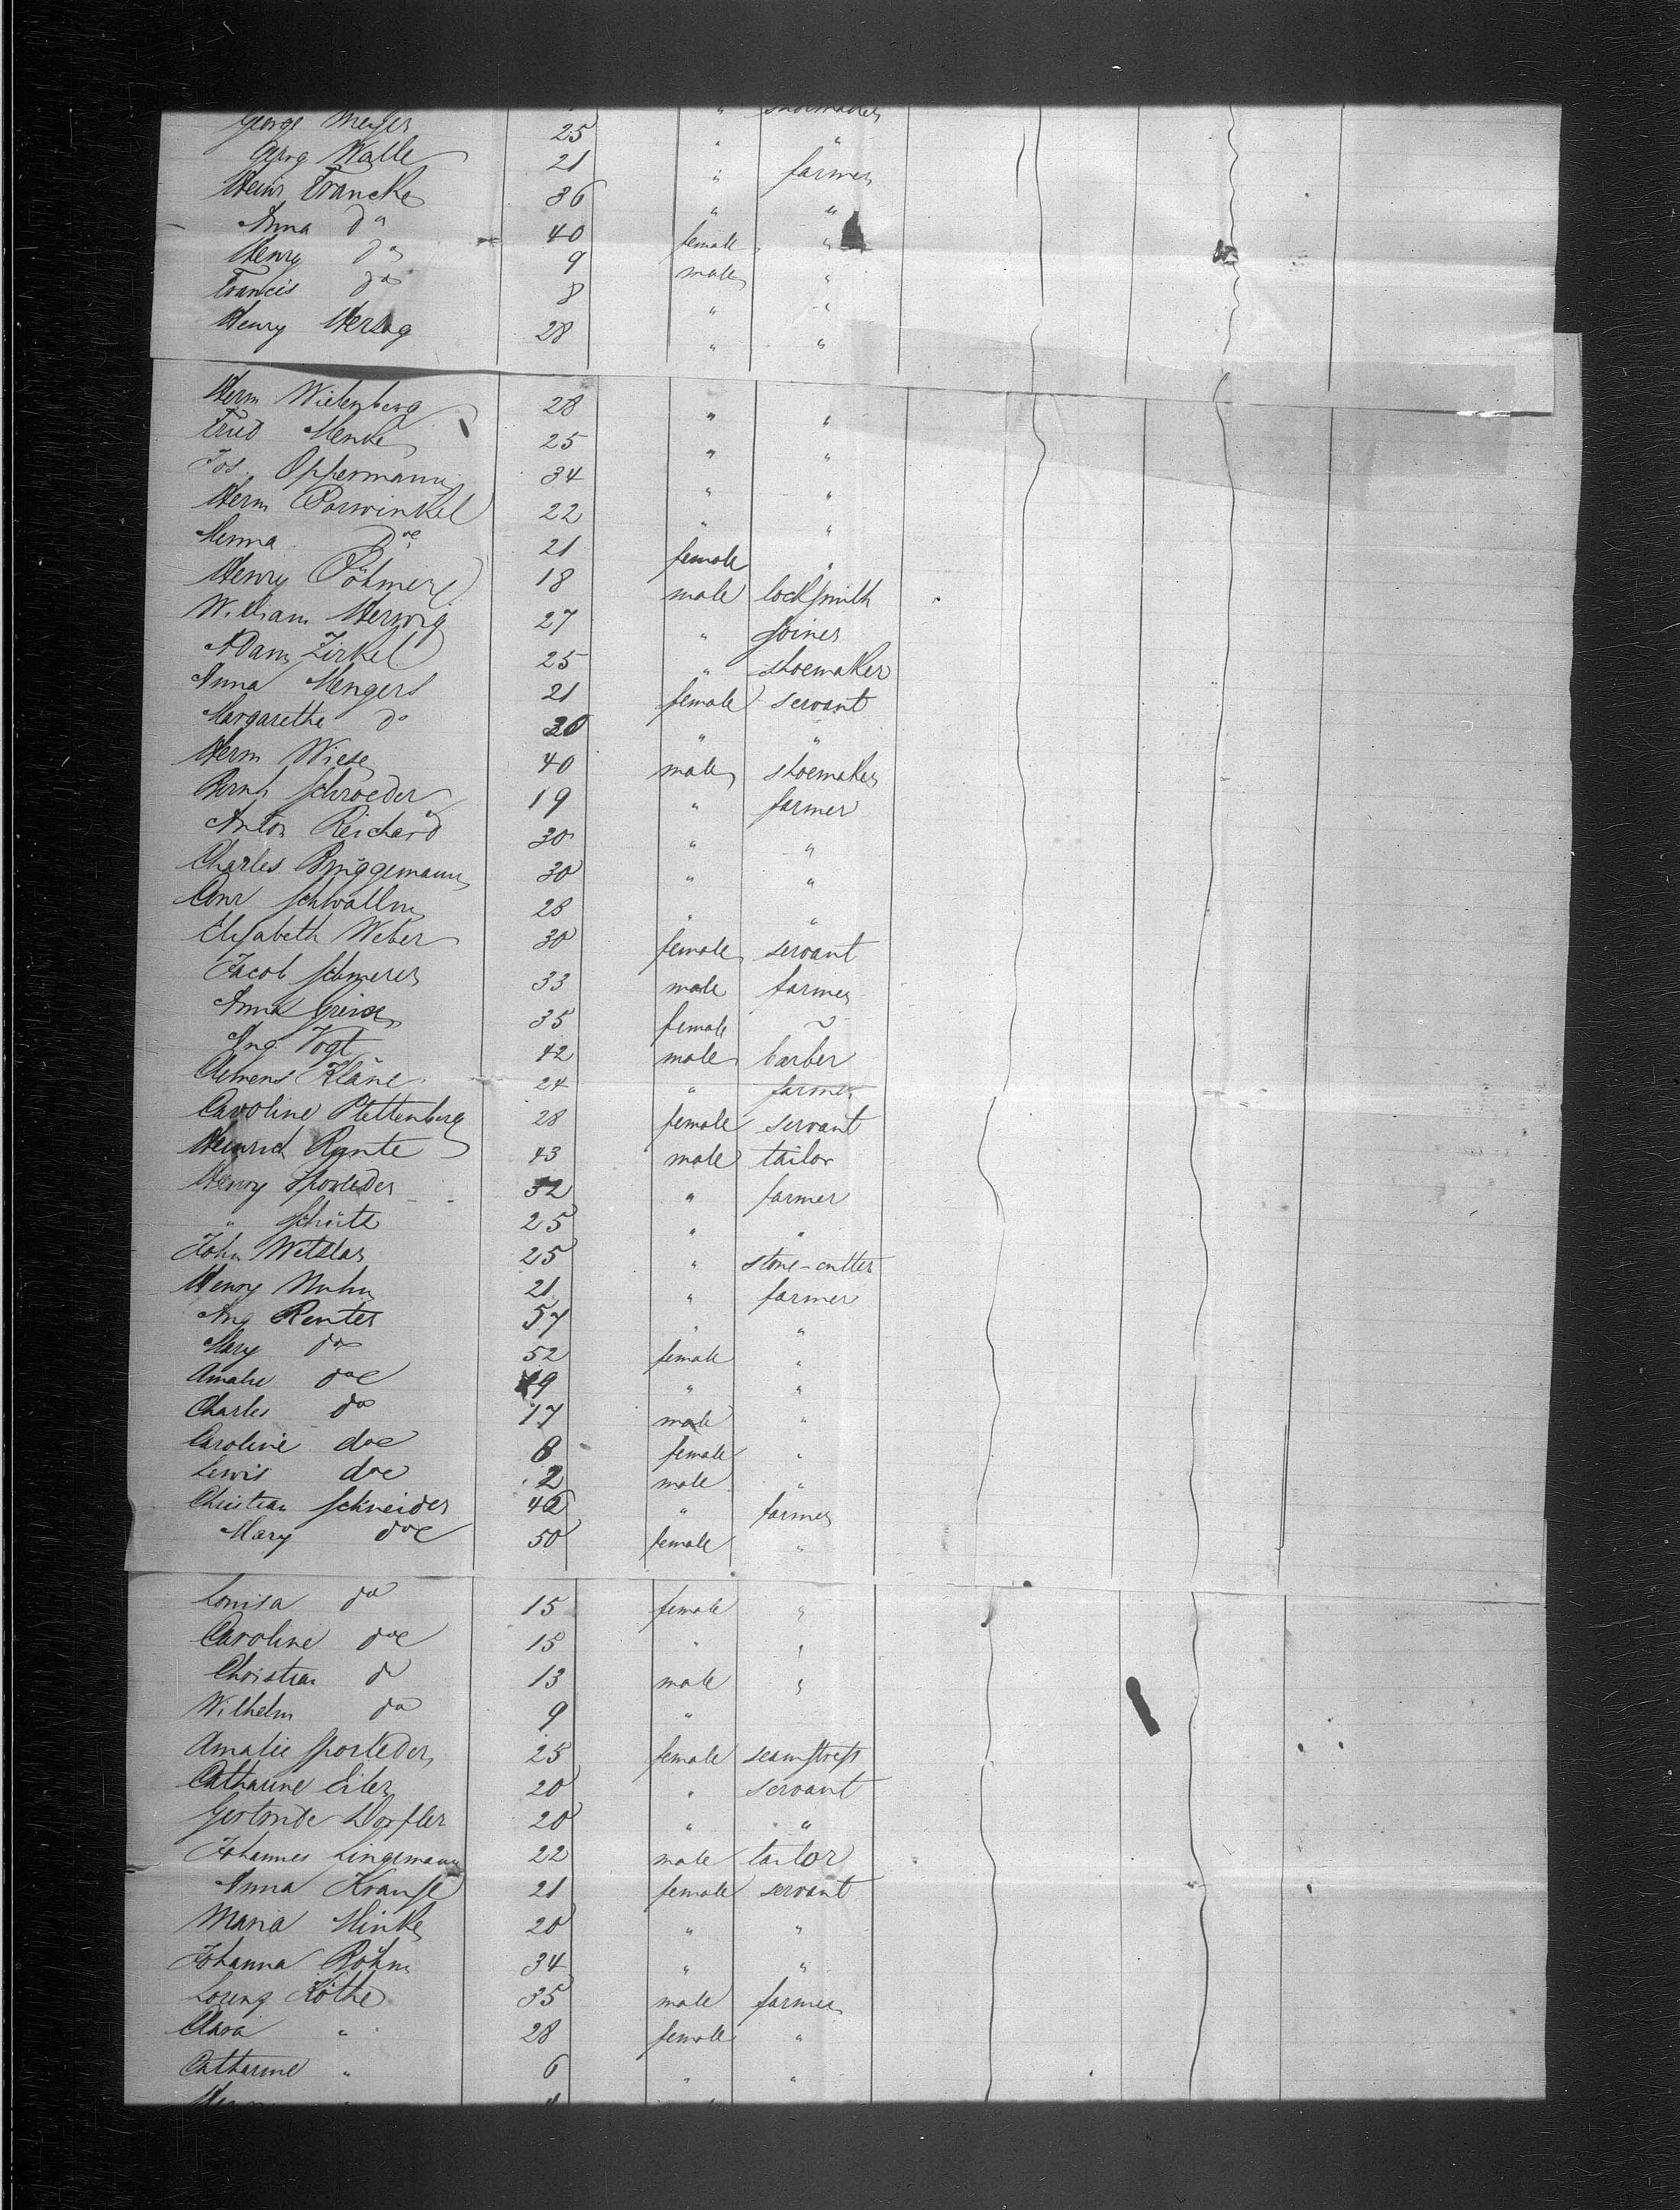 shoemaker
George Meyer 25 " "
Georg Walle 21 " farmer
Heinr Francke 36 " "
Anna do 40 female "
Henry do 9 male "
Francis do 8 " "
Henry Herzog 28 " "
Herm Wietenberg 28 " "
Fried Menke 25 " "
Jos. Oppermann 34 " "
Herm Porwinkel 22 " "
Menna do 21 female "
Henry Pöhmerl 18 male locksmith
William Herwig 27 " joiner
Adam Zirkel 25 " shoemaker
Anna Mengers 21 female servant
Margarethe do 20 " "
Herm Wiese 40 male shoemaker
Bernh Schroeder 19 " farmer
Anton Reichard 30 " "
Charles Brüggemann 30 " "
Conr Schwallm 28 " "
Elisabeth Weber 30 female servant
Jacob Schmerer 33 male farmer
Anna 35 female
Aug. Vogt 42 male barber
Clemens Kläne 24 " farmer
Caroline Plettenberg 28 female servant
Heinrich Rente 43 male tailor
Henry Sporleder 32 " farmer
" Schütte 25 " "
John Wetzlar 25 " stone-cutter
Henry Nuhn 21 " farmer
Aug Renter 57 " "
Mary do 52 female "
Amalie do 19 " "
Charles do 17 male "
Caroline do 8 female "
Lewis do 2 male "
Christian Schneider 42 " farmer
Mary do 50 female "
Louisa do 15 female "
Caroline do 15 " "
Christian do 13 male "
Wilhelm do 9 "
Amalie Sporleder 25 female seamstress
Catharine Eiler 20 " servant
Gertrude Dorfler 20 " "
Johannes Lingemann 22 male tailor
Anna Krause 21 female servant
Maria Hinke 20 " "
Johanna Böhm 34 " "
Lorenz Köthe 35 male farmer
Clara " 28 female "
Catharine " 6 " "